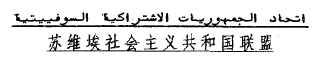 اتحاد الجمهوريات الاشتراكية السوفييتية
苏维埃社会主义共和国联盟